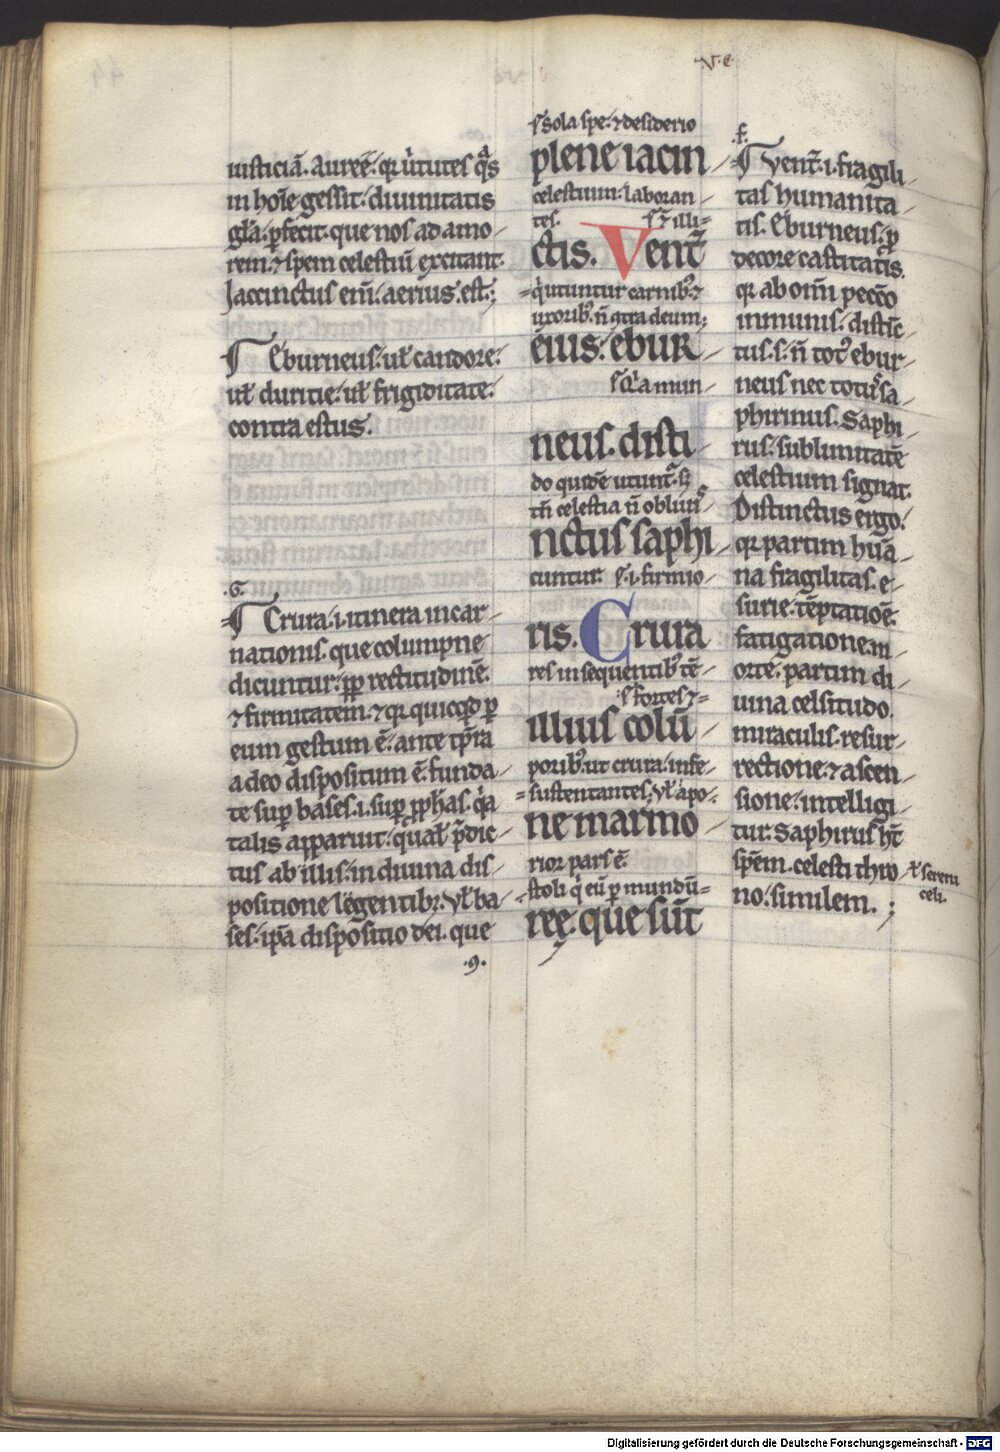 V. c.
iusticiā. Auree. qr ůtutes qͣs
in hoīe gessit. diuinitatis
gl̄a. ꝑfecit. que nos ad amo-
rem. ⁊ spem celestiū excitant.
Jaccinctus em̄. aerius. est.
¶ Eburneus. ul̄ candore.
ul̄ duritie. ul̄ frigiditate.
contra estus.
.G.
¶ Crura .i. itinera incar-
nationis. que columpne
dicuntur. ꝓp rectitudinē.
⁊ firmitatem. ⁊ qr quicqd ꝑ
eum gestum ē. ante tp̄ra
adeo dispositum ē. funda-
te suꝑ bases .i. suꝑ ꝓph̄as. qͥa
talis apparuit. qual̄ p̄dic-
tus ab illis. in diuina dis-
positione legentibꝫ. Vl̄ ba-
ses. ip̄a dispositio dei. que
.9.
s̄ sola spe. ⁊ desiderio
plene iacin-
celestium. laboran-
tes.
s̄ illi=
ctis. Vent̄
=qͥ utuntur carnibꝰ ⁊
uxoribꝰ. n̄ ꝯtra deum;
eius. ebur-
s̄ qͥa mun-
neus. disti-
do quidē utunt̄. sꝫ
tn̄ celestia n̄ obliuiˢ
nctus saphi-
cuntur. s̄ .i. firmio-
ris. Crura
res in sequentibꝰ tē-
s̄ fortes ⁊=
illius colū-
poribꝰ. ut crura. infe-
=sustentantes. Vl̄ apo-
ne marmo-
rior pars ē.
-stoli qͥ eū ꝑ mundū=
ree. que sūt
.F.
¶ Vent̄ .i. fragili-
tas humanita-
tis. Eburneus. ꝑ
decore castitatis.
qr ab om̄i peccō
inmunis. distīc-
tus. s. n̄ totꝰ ebur-
neus nec totus sa-
phirinus. Saphi-
rus. sublimitatē
celestium signat.
Distinctus ergo.
qr partim huā-
na fragilitas. e-
surie. tēptatiōe.
fatigatione. m-
orte. partim di-
uina celsitudo.
miraculis. resur-
rectione. ⁊ ascen-
sione. intelligi-
tur. Saphirus h̄t
spēm. celesti thro-
no. similem.
ul̄ sereni
celi.
Digitalisierung gefördert durch die Deutsche Forschungsgemeinschaft - DFG